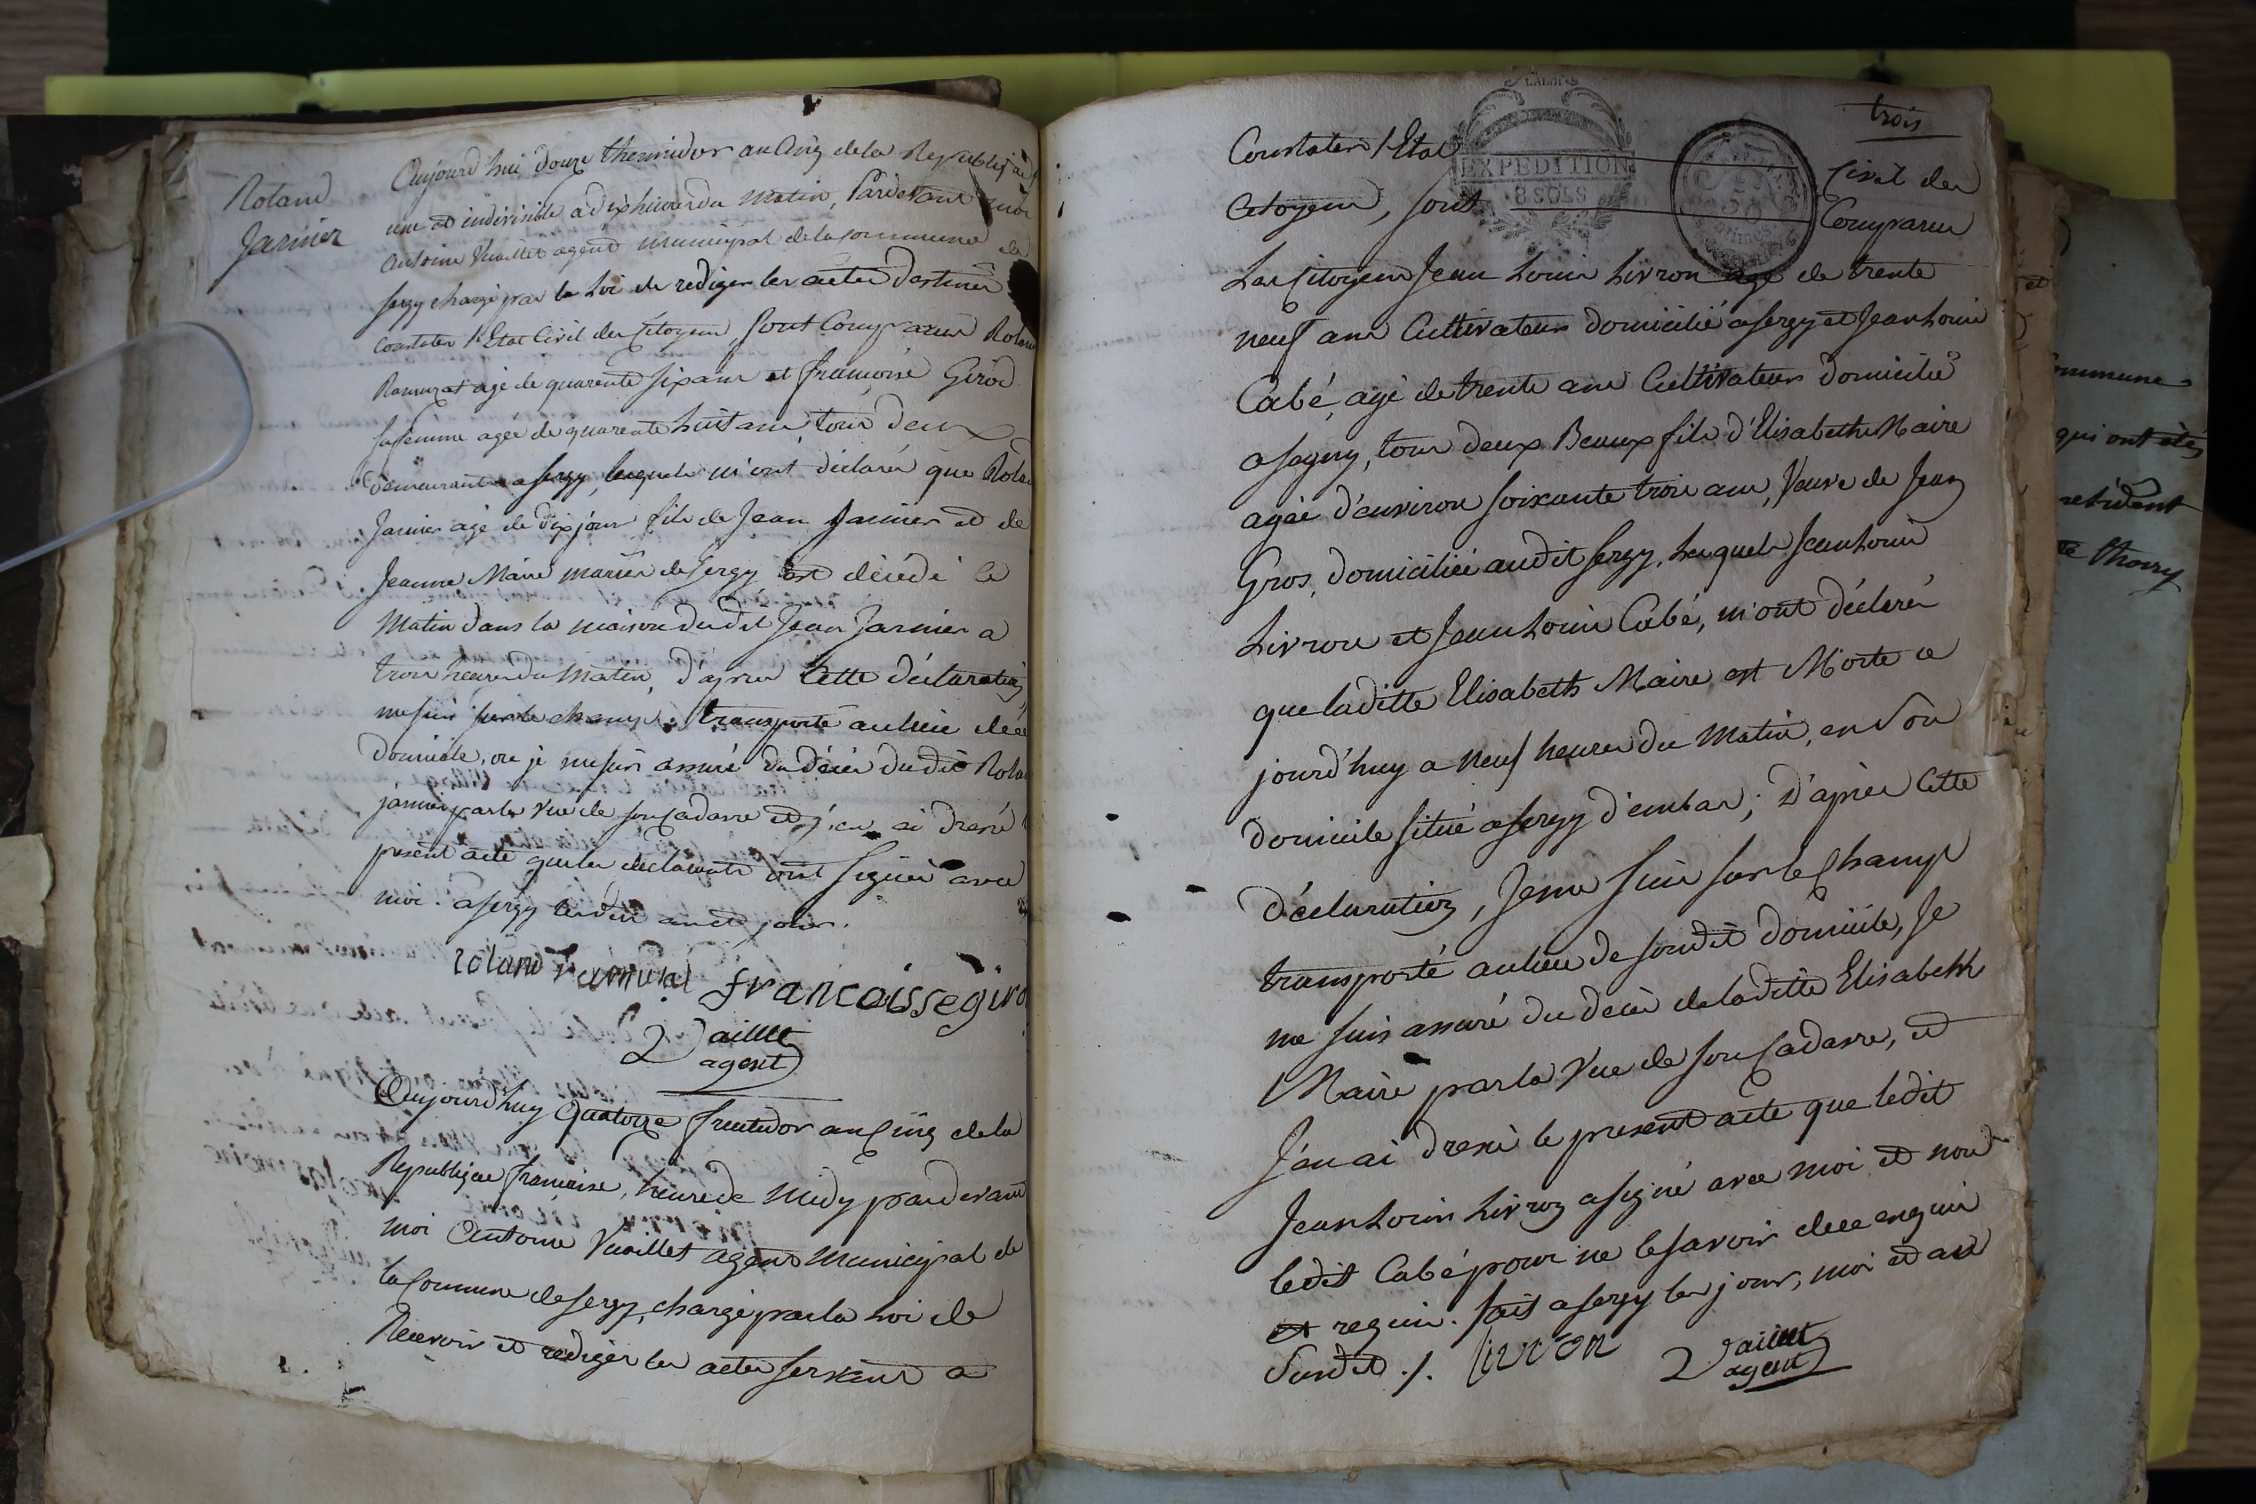 Roland
Janier
Aujourd'hui douze thermidor an cinq de la Republique
une et indivisible a dix heures du matin, Pardevant moi
Antoine Vuaillet agent municipal de la commune de
sergy chargé par la Loi de rediger les actes destinés
constater l'Etat Civil des Citoyens, sont Comparus Roland
Ramuzat agé de quarente six ans et françoise Girod
sa femme agée de quarente huit ans, tous deux
demeurants a sergy, lesquels m'ont déclaré que Roland
Janier agé de dix jours fils de Jean Janier et de
Jeanne Maire mariés de Sergy est décédé ce
Matin dans la maison dudit Jean Janier a
trois heures du Matin, d'après cette déclaration,
me suis sur le champ transporté au lieu de ce
domicile, ou je me suis assuré du décès dudit Roland
janier par la vue de son cadavre et j'en ai dressé
present acte que les declarants ont signés avec
moi. a sergy les dits an et jour.
roland ramuzat francoisse giro
Vuaillet
agent
Aujourd'huy quatorze fructidor an cinq de la
Republique française, heure de midy pardevant
moi Antoine Vuaillet agent Municipal de
la Commune de sergy, chargé par la Loi de
Recevoir et rediger les actes servant a
trois
Constater l'Etat Civil des
Citoyens, sont Comparus
EXPEDITION
8 SOLS
Les Citoyens Jean Louis Livron agé de trente
neuf ans Cultivateur domicilié a sergy et Jean Louis
Cabé, agé de trente ans Cultivateur domicilié
a segny, tous deux Beaux fils d'Elisabeth Maire
agée d'environ soixante trois ans, Veuve de Jean
Gros, domiciliée audit sergy, lesquels Jean Louis
Livron et Jean Louis Cabé, m'ont déclaré
que laditte Elisabeth Maire est Morte ce
jourd'huy a neuf heures du Matin, en son
domicile situé a sergy d'embas; D'après Cette
déclaration, Je me suis sur le champ
transporté au lieu de sondit domicile, Je
me suis assuré du décès de laditte Elisabeth
Maire par la Vue de son Cadavre, et
J'en ai dressé le present acte que ledit
Jean Louis Livron a signé avec moi et non
ledit Cabé pour ne le savoir de ce enquis
et requis. fait a sergy les jour, moi et an
susdit ./. Livron
Vuaillet
agent
ommune
qui ont été
residant
thoiry